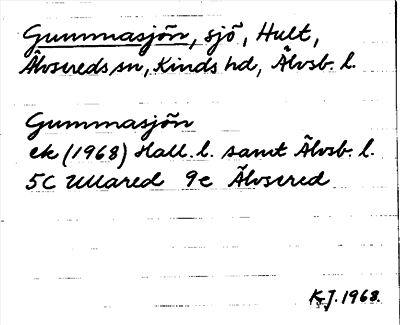 Gummasjön, sjö, Hult,
Älvsereds sn, Kinds hd, Älvsb. l.
Gummasjön
ek (1968) Hall. l. samt Älvsb. l.
5C Ullared 9e Älvsered
K.J. 1968.